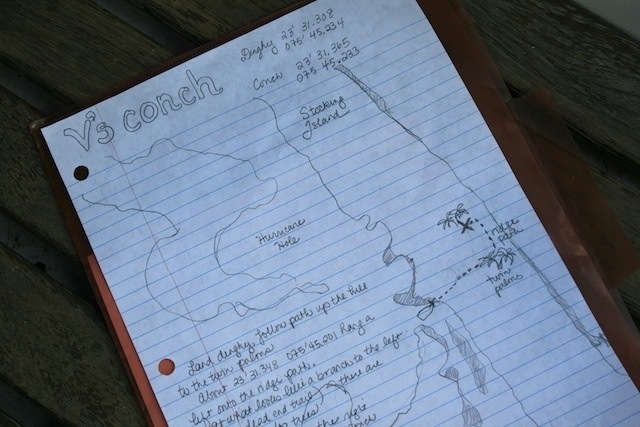 V's conch
Dinghy 23' 31.308
075' 45.234
Conch 23' 31.365
075 45.233
Stocking
Island
Hurricane
Hole
X
ridge
path
twin
palms
Land dinghy, follow path up the hill
to the twin palms
About 23' 31.348 075'45.201 Hang a
left onto the ridge path.
at what looks like a branch to the left
dead end trail there are
trees
the right